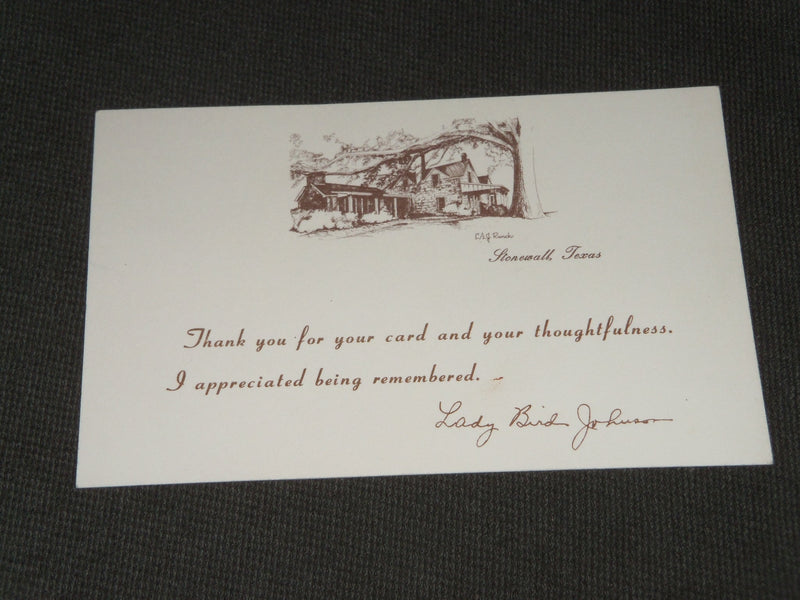 LBJ Ranch
Stonewall, Texas
Thank you for your card and your thoughtfulness.
I appreciated being remembered.
Lady Bird Johnson